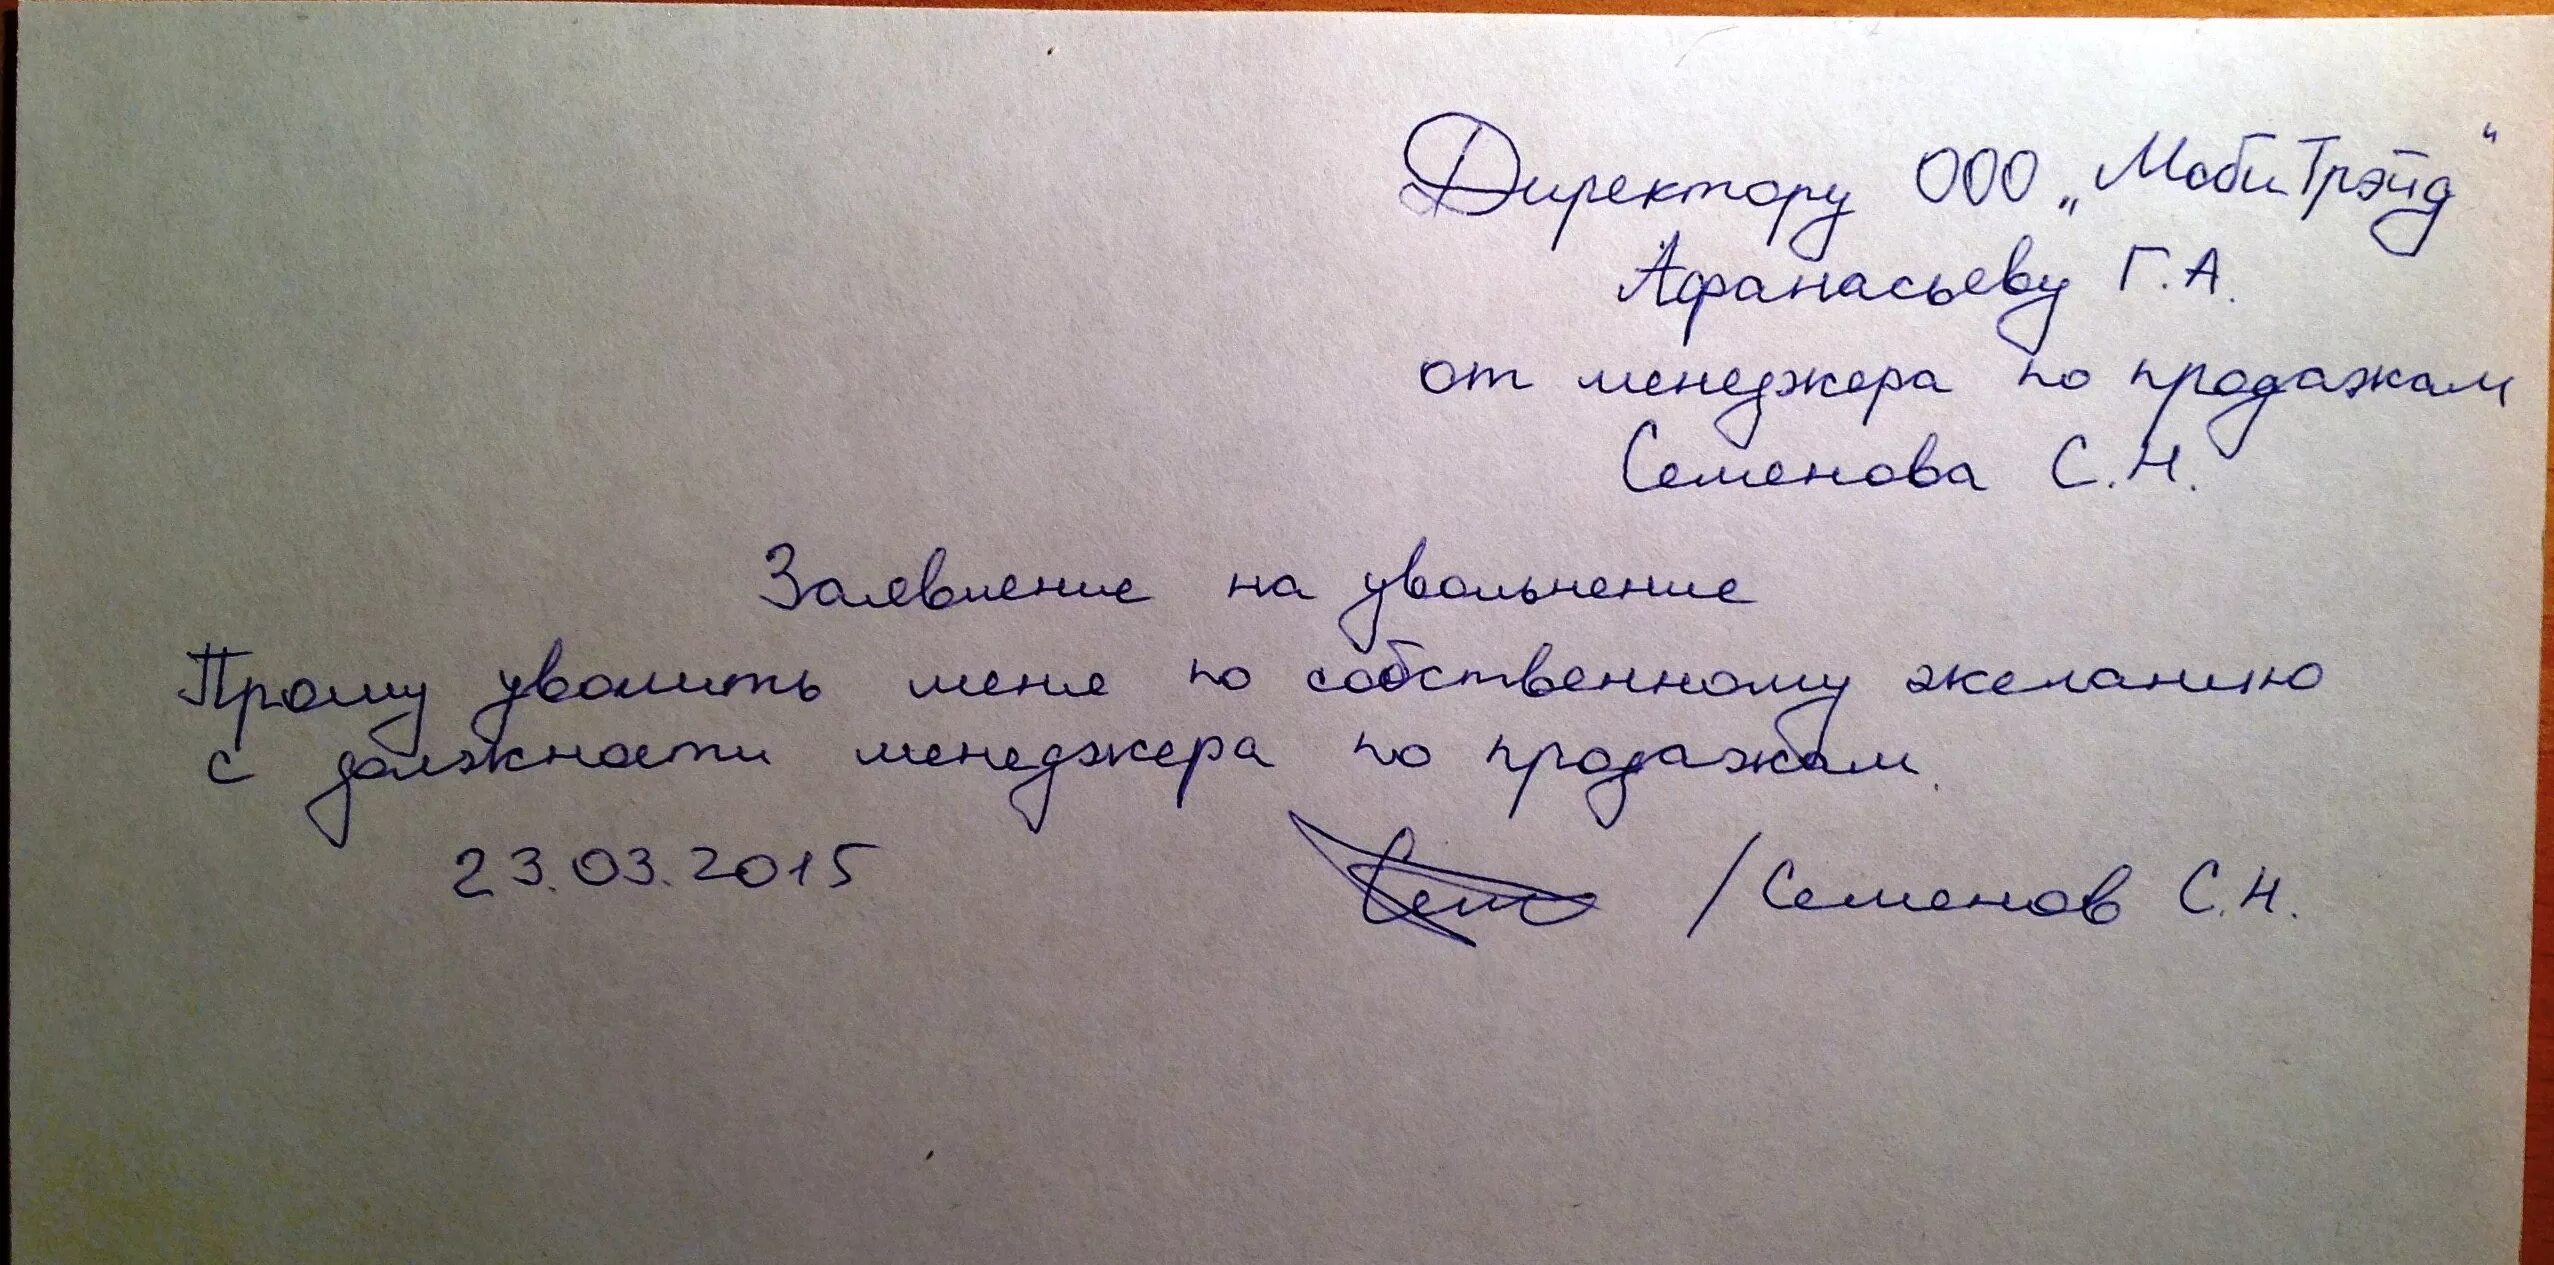 Директору ООО „МобиТрэйд"
Афанасьеву Г.А.
от менеджера по продажам
Семенова С.Н.
Заявление на увольнение
Прошу уволить меня по собственному желанию
с должности менеджера по продажам.
23.03.2015 Сем /Семенов С.Н.